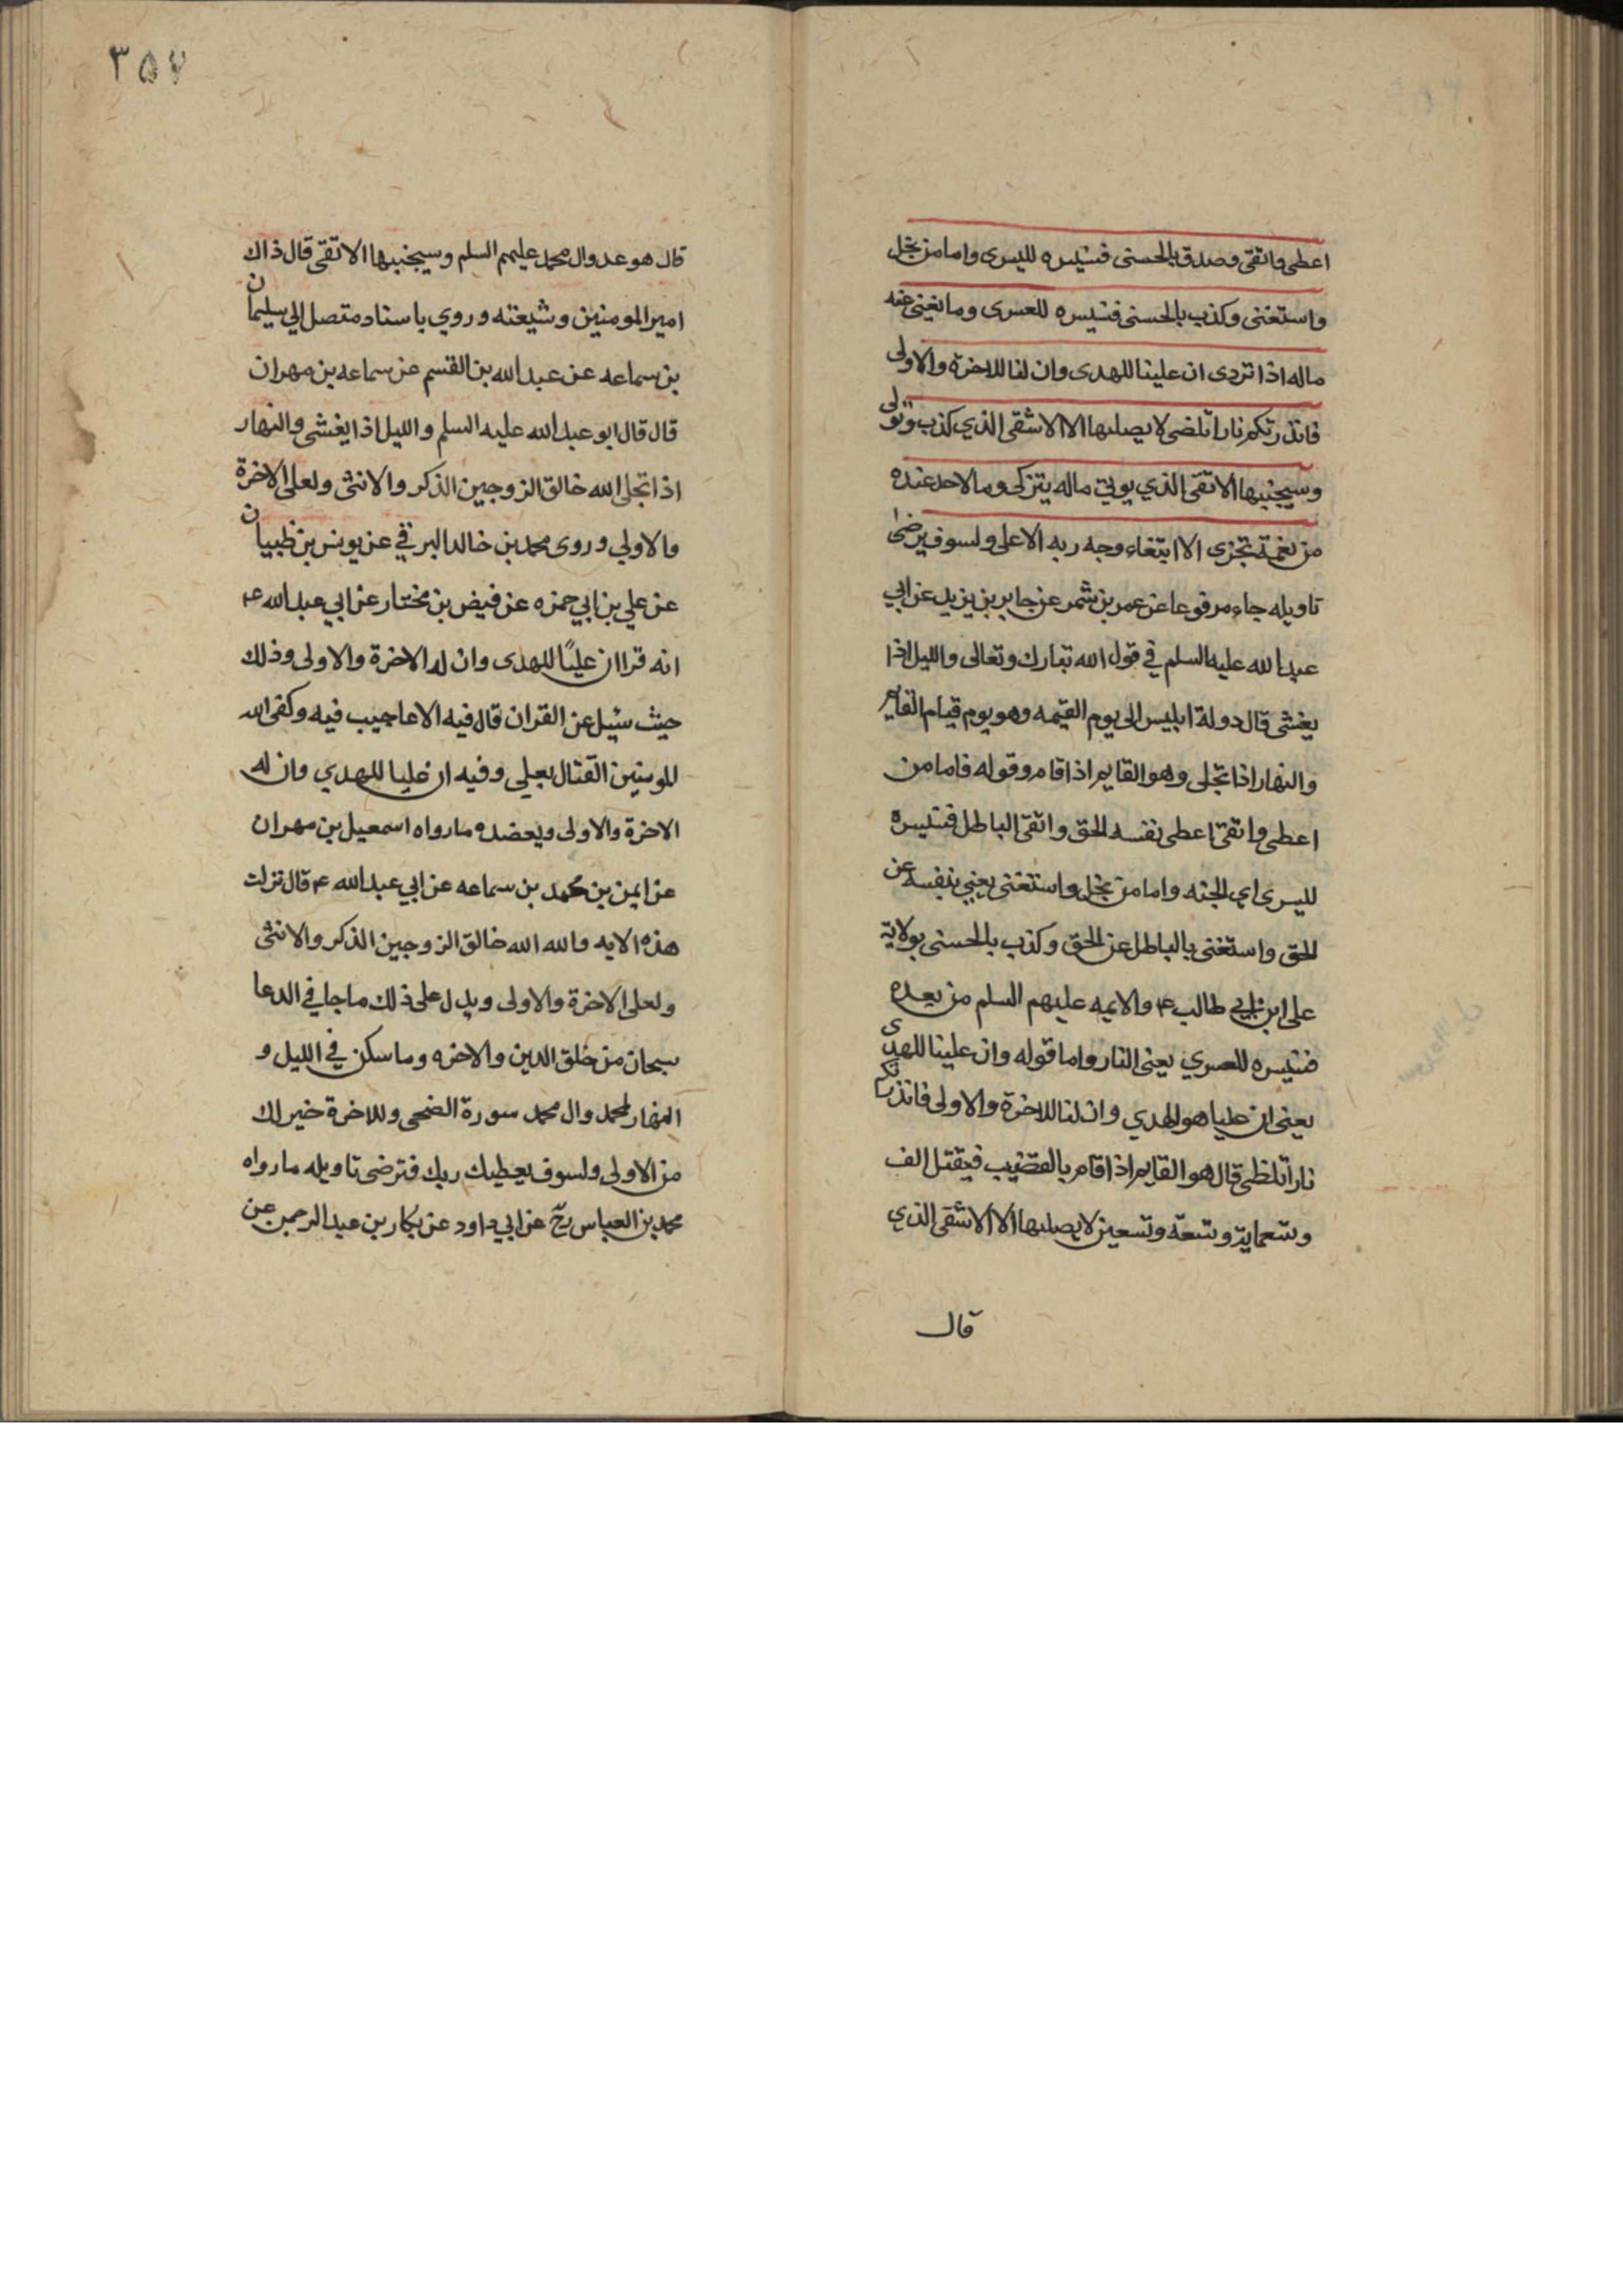 اعطى واتقى وصدق بالحسنى فسنيسره لليسرى واما من بخل
واستغنى وكذب بالحسنى فسنيسره للعسرى وما يغنى عنه
ماله اذا تردى ان علينا للهدى وان لنا للاخرة والاولى
فانذرتكم نارا تلضى لا يصلبها الا الاشقى الذي كذب وتولى
وسيجنبها الاتقى الذي يوتي ماله يتزكى وما لاحد عنده
من نعمة تجزى الا ابتغاء وجه ربه الاعلى ولسوف يرضى
تاويله جاء مرفوعا عن عمر بن شمر عن جابر بن يزيد عن ابي
عبد الله عليه السلم في قول الله تبارك وتعالى والليل اذا
يغشى قال دولة ابليس الى يوم القيمه وهو يوم قيام القايم
والنهار اذا تجلى وهو القايم اذا قام وقوله فاما من
اعطى واتقى اعطى نفسه الحق واتقى الباطل فسنيسره
لليسرى اي الجنه واما من بخل واستغنى يعني بنفسه عن
الحق واستغنى بالباطل عن الحق وكذب بالحسنى بولاية
على ابن ابي طالب ع والايمه عليهم السلم من بعده
فسنيسره للعسري يعنى النار واما قوله وان علينا للهدى
يعنى ان عليا هو الهدي وان لنا للاخرة والاولى فانذرتكم
نارا تلظى قال هو القايم اذا قام بالغضب فيقتل الف
وتسعماية وتسعة وتسعين لا يصلبها الا الاشقى الذي
قال
٣٥٧
قال هو عدو ال محمد عليهم السلم وسيجنبها الاتقى قال ذاك
امير المومنين وشيعته وروي باسناد متصل الي سليمان
بن سماعه عن عبد الله بن القسم عن سماعه بن مهران
قال قال ابو عبد الله عليه السلم والليل اذا يغشى والنهار
اذا تجلى الله خالق الزوجين الذكر والانثى ولعلى الاخرة
والاولي وروى محمد بن خالد البرقي عن يونس بن ظبيان
عن علي بن ابي حمزه عن فيض بن مختار عن ابي عبد الله ع
انه قرا ان عليًا للهدى وان له الاخرة والاولى وذلك
حيث سئيل عن القران قال فيه الاعاجيب فيه وكفى الله
المومنين القتال بعلي وفيه ان عليا للهدي وان له
الاخرة والاولى ويعضده ما رواه اسمعيل بن مهران
عن ايمن بن محمد بن سماعه عن ابي عبد الله ع قال نزلت
هذه الايه والله الله خالق الزوجين الذكر والانثى
ولعلى الاخرة والاولى ويدل على ذلك ما جا في الدعا
سبحان من خلق الدين والاخره وما سكن في الليل و
النهار لمحمد وال محمد سورة الضحى وللاخرة خير لك
من الاولى ولسوف يعطيك ربك فترضى تاويله ما رواه
محمد بن العباس رح عن ابي داود عن بكار بن عبد الرحمن عن